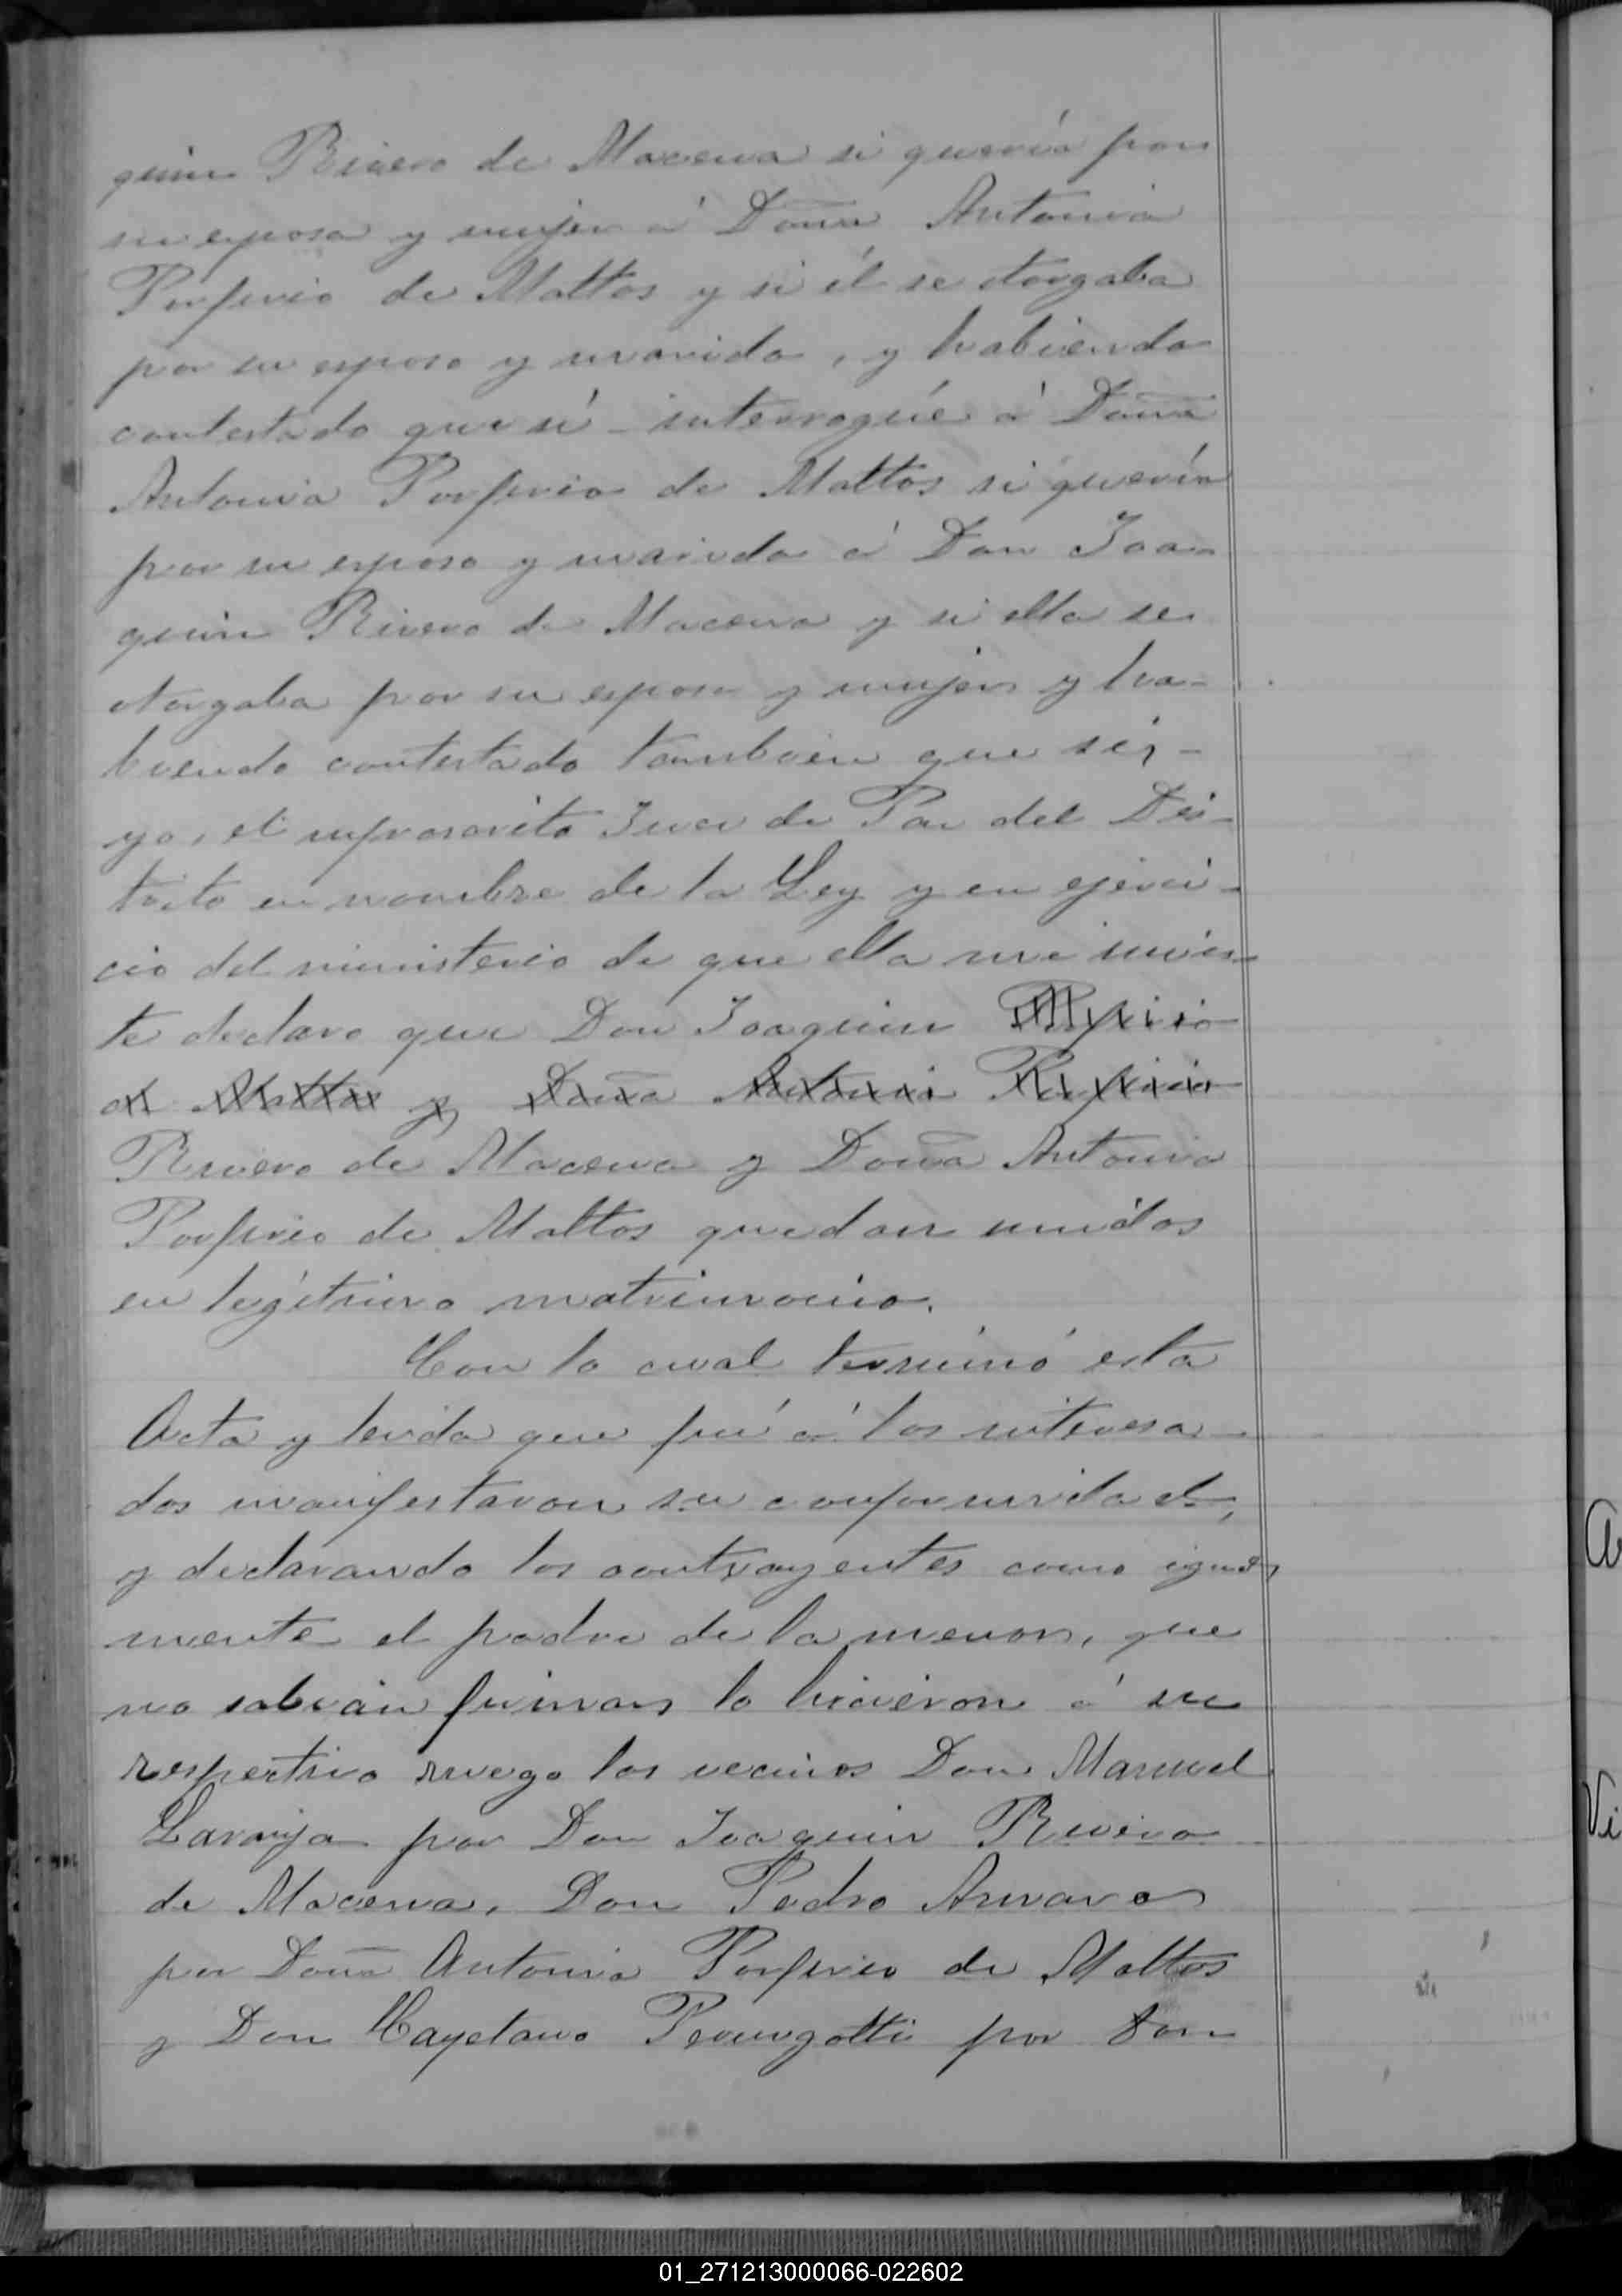 quin Rivero de Macena si quería por
su esposa y mujer á Doña Antonia
Porfirio de Mattos y si él se otorgaba
por su esposo y marido, y habiendo
contestado que sí - interrogué á Doña
Antonia Porfirio de Mattos si quería
por su esposo y marido á Don Joa-
quin Rivero de Macena y si ella se
otorgaba por su esposa y mujer y ha-
biendo contestado tambien que sí, -
yo, el infrascrito Juez de Paz del Dis-
trito en nombre de la Ley y en ejerci-
cio del ministerio de que ella me invis-
te declaro que Don Joaquin Porfirio
de Mattos y Doña Antonia Porfirio
Rivero de Macena y Doña Antonia
Porfirio de Mattos quedan unidos
en legítimo matrimonio.
Con lo cual terminó esta
Acta y leida que fué á los interesa-
dos manifestaron su conformidad,
y declarando los contrayentes como igual,
mente el padre de la menor, que
no sabian firmar lo hicieron á su
respectivo ruego los vecinos Don Manuel
Laranja por Don Joaquin Rivero
de Macena, Don Pedro Amaro
por Doña Antonia Porfirio de Mattos
y Don Cayetano por Don
a
Vi
01_271213000066-022602